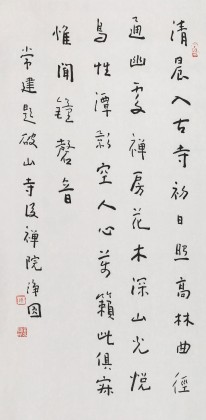 清晨入古寺初日照高林曲徑
通幽處禪房花木深山光悅
鳥性潭影空人心萬籟此俱寂
惟聞鐘磬音
常建題破山寺後禪院 淨因